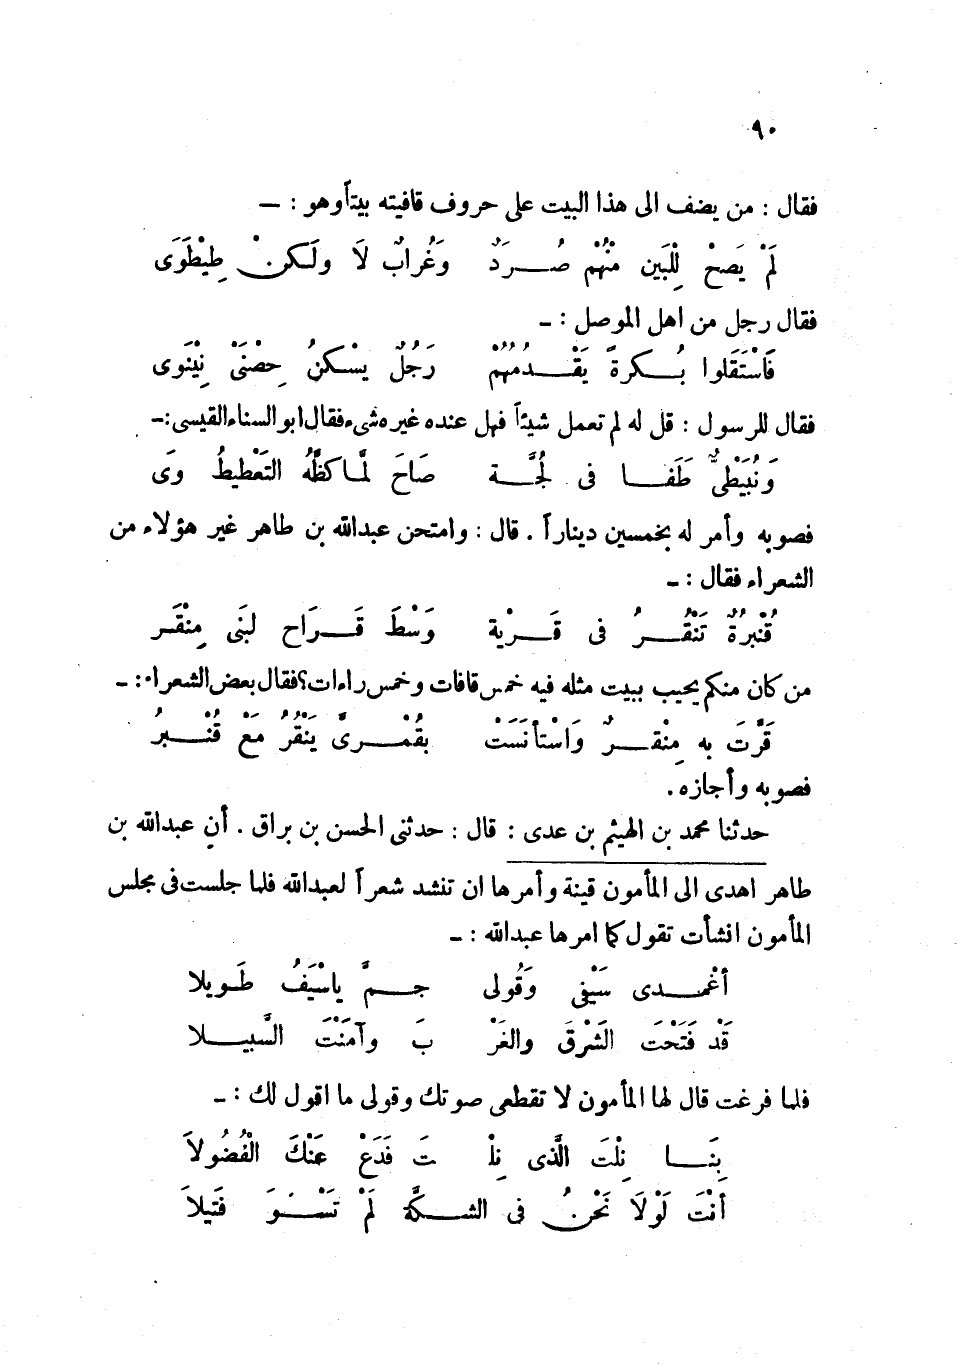 ٩٠
فقال : من يضف الى هذا البيت على حروف قافيته بيتاً وهو : —
لَمْ يَصحْ لِلْبَين مِنْهُم صُـرَدٌ وَغُرابٌ لَا ولَـكنْ طِيْطَوَى
فقال رجل من اهل الموصل : —
فَاسْتَقَلوا بُـكرةً يَقْـدُمُهُمْ رَجُلٌ يسْكنُ حِصْنَىْ نِيْنَوى
فقال للرسول : قل له لم تعمل شيئاً فهل عنده غيره شىء فقال ابو السناء القيسى :—
وَنُبَيْطىٌّ طَفَـا فى لُجَّـة صَاحَ لمَّا كظَّهُ التَعْطيطُ وَى
فصوبه وأمر له بخمسين ديناراً . قال : وامتحن عبدالله بن طاهر غير هؤلاء من
الشعراء فقال : —
قُنْبرَةٌ تَنْقُـرُ فى قَـرْية وَسْطَ قَـرَاح لبَنى مِنْقَـر
من كان منكم يجيب ببيت مثله فيه خمس قافات وخمس راءات؟ فقال بعض الشعراء : —
قَرَّتَ به مِنْقـرٌ وَاسْتأنَسَتْ بقُمْـرىّ يَنْقُرُ مَعْ قُنْـبرُ
فصوبه وأجازه .
حدثنا محمد بن الهيثم بن عدى : قال : حدثنى الحسن بن براق . أن عبدالله بن
طاهر اهدى الى المأمون قينة وأمرها ان تنشد شعراً لعبدالله فلما جلست فى مجلس
المأمون انشأت تقول كما امرها عبدالله : —
أغْمـدى سَيْفى وَقُولى جـمَّ ياسْيَفُ طَـويلا
قَدْ فَتَحْتَ الشَرْقَ والغَرْ بَ وآمَنْتَ السَّبيـلا
فلما فرغت قال لها المأمون لا تقطعى صوتك وقولى ما اقول لك : —
بِنَـا نِلْتَ الَّذى نِلْـ تَ فَدَعْ عَنْكَ الْفُضُولاَ
أنْتَ لَوْلَا نَحْنُ فى الشـكَّة لَمْ تَسْـوَ فَتيلاَ